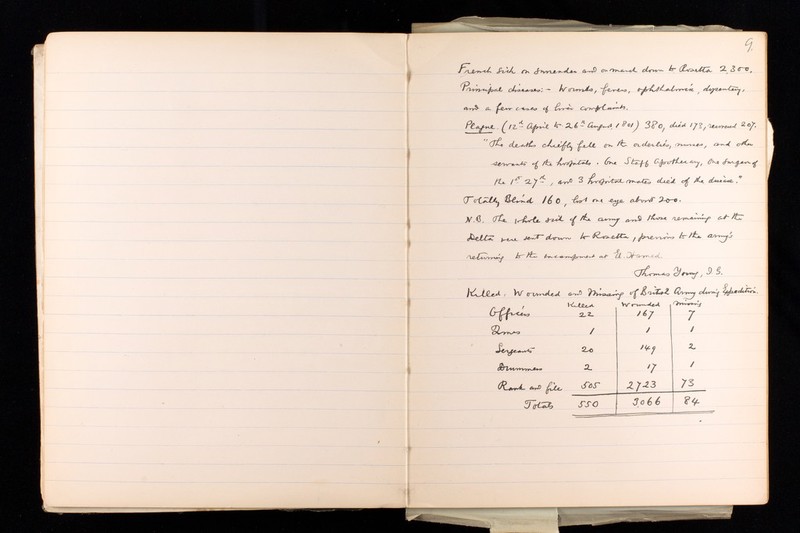 9.
French sick on surrender and command down to Rosetta 2,300.
Principal diseases:- Wounds, fevers, ophthalmia, dysentery,
and a few cases of liver complaints.
Plague. (12th April to 26th August, 1801) 380, died 173, recovered 207.
"The deaths chiefly fell on the orderlies, nurses, and other
servants of the hospitals. One Staff Apothecary, One Surgeon of
the 1st 27th, and 3 hospital mates died of the disease."
Totally Blind 160, lost one eye about 200.
N.B. The whole sick of the army and those remaining at the
Delta were sent down to Rosetta, previous to the army's
returning to the encampment at El Hamed.
Thomas Young, I.G.
Killed, Wounded and Missing of British Army during Expedition.
Killed Wounded Missing
Officers 22 167 7
1 1 1
Sergeants 20 149 2
Drummers 2 17 1
Rank and file 505 2723 73
Totals 550 3066 84